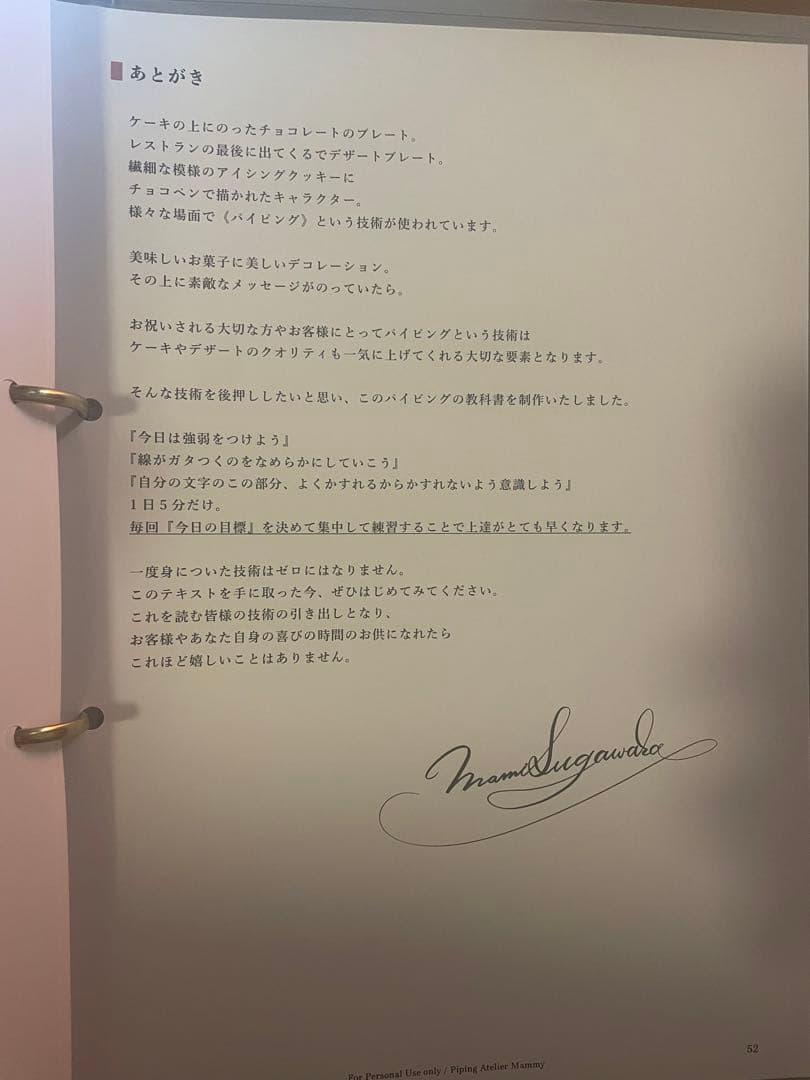 あとがき
ケーキの上にのったチョコレートのプレート。
レストランの最後に出てくるでデザートプレート。
繊細な模様のアイシングクッキーに
チョコペンで描かれたキャラクター。
様々な場面で《パイピング》という技術が使われています。
美味しいお菓子に美しいデコレーション。
その上に素敵なメッセージがのっていたら。
お祝いされる大切な方やお客様にとってパイピングという技術は
ケーキやデザートのクオリティも一気に上げてくれる大切な要素となります。
そんな技術を後押ししたいと思い、このパイピングの教科書を制作いたしました。
『今日は強弱をつけよう』
『線がガタつくのをなめらかにしていこう』
『自分の文字のこの部分、よくかすれるからかすれないよう意識しよう』
1日5分だけ。
毎回『今日の目標』を決めて集中して練習することで上達がとても早くなります。
一度身についた技術はゼロにはなりません。
このテキストを手に取った今、ぜひはじめてみてください。
これを読む皆様の技術の引き出しとなり、
お客様やあなた自身の喜びの時間のお供になれたら
これほど嬉しいことはありません。
Mami Sugawara
52
For Personal Use only / Piping Atelier Mammy